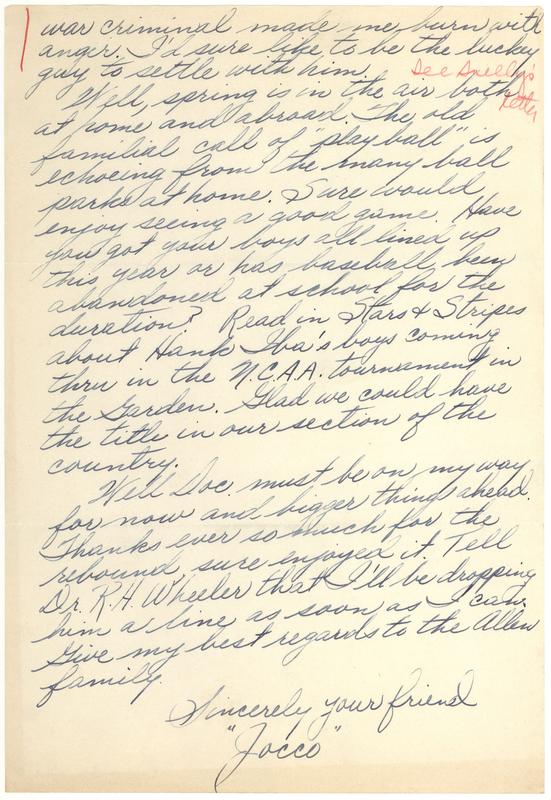 war criminal made me burn with
anger. I'd sure like to be the lucky
guy to settle with him.
See Spelly's
letter
Well, spring is in the air both
at home and abroad. The old
familial call of "play ball" is
echoeing from the many ball
parks at home. Sure would
enjoy seeing a good game. Have
you got your boys all lined up
this year or has baseball been
abandoned at school for the
duration? Read in Stars & Stripes
about Hank Iba's boys coming
thru in the N.C.A.A. tournament in
the Garden. Glad we could have
the title in our section of the
country.
Well Doc. must be on my way
for now and bigger things ahead.
Thanks ever so much for the
rebound, sure enjoyed it. Tell
Dr. R.H. Wheeler that I'll be dropping
him a line as soon as I can.
Give my best regards to the Allen
family.
Sincerely your friend
"Jocco"